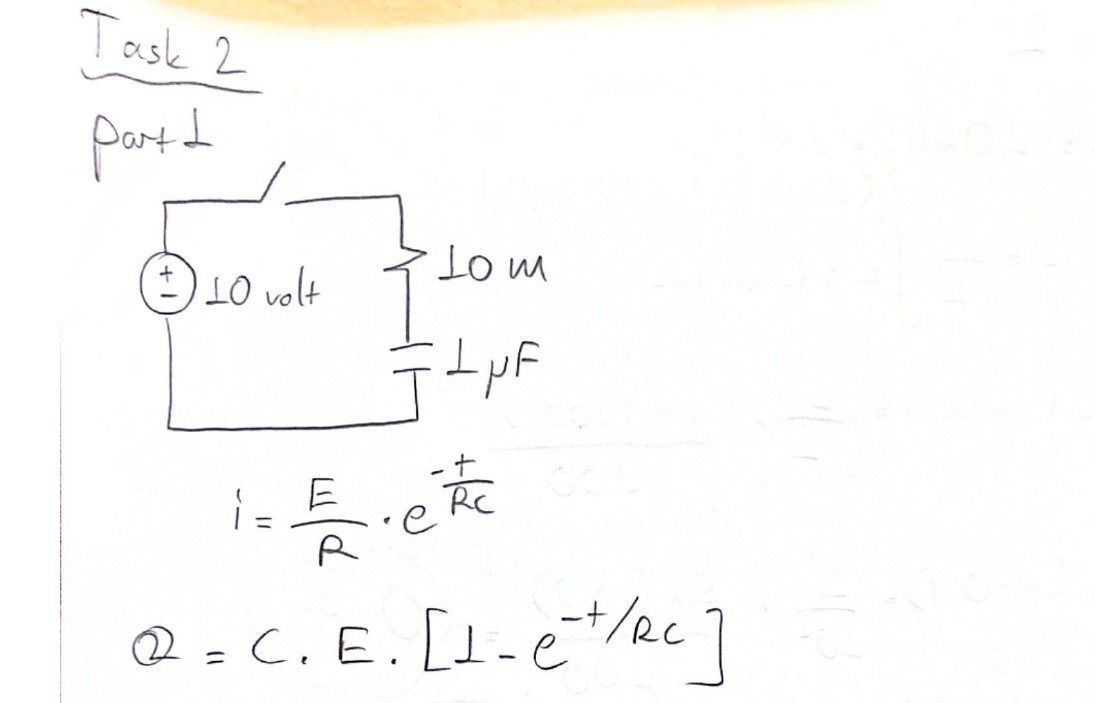 Task 2
part 1
10 m
+ - 10 volt
1 μF
i = E/R · e^(-t/RC)
Q = C . E . [1 - e^(-t/RC)]